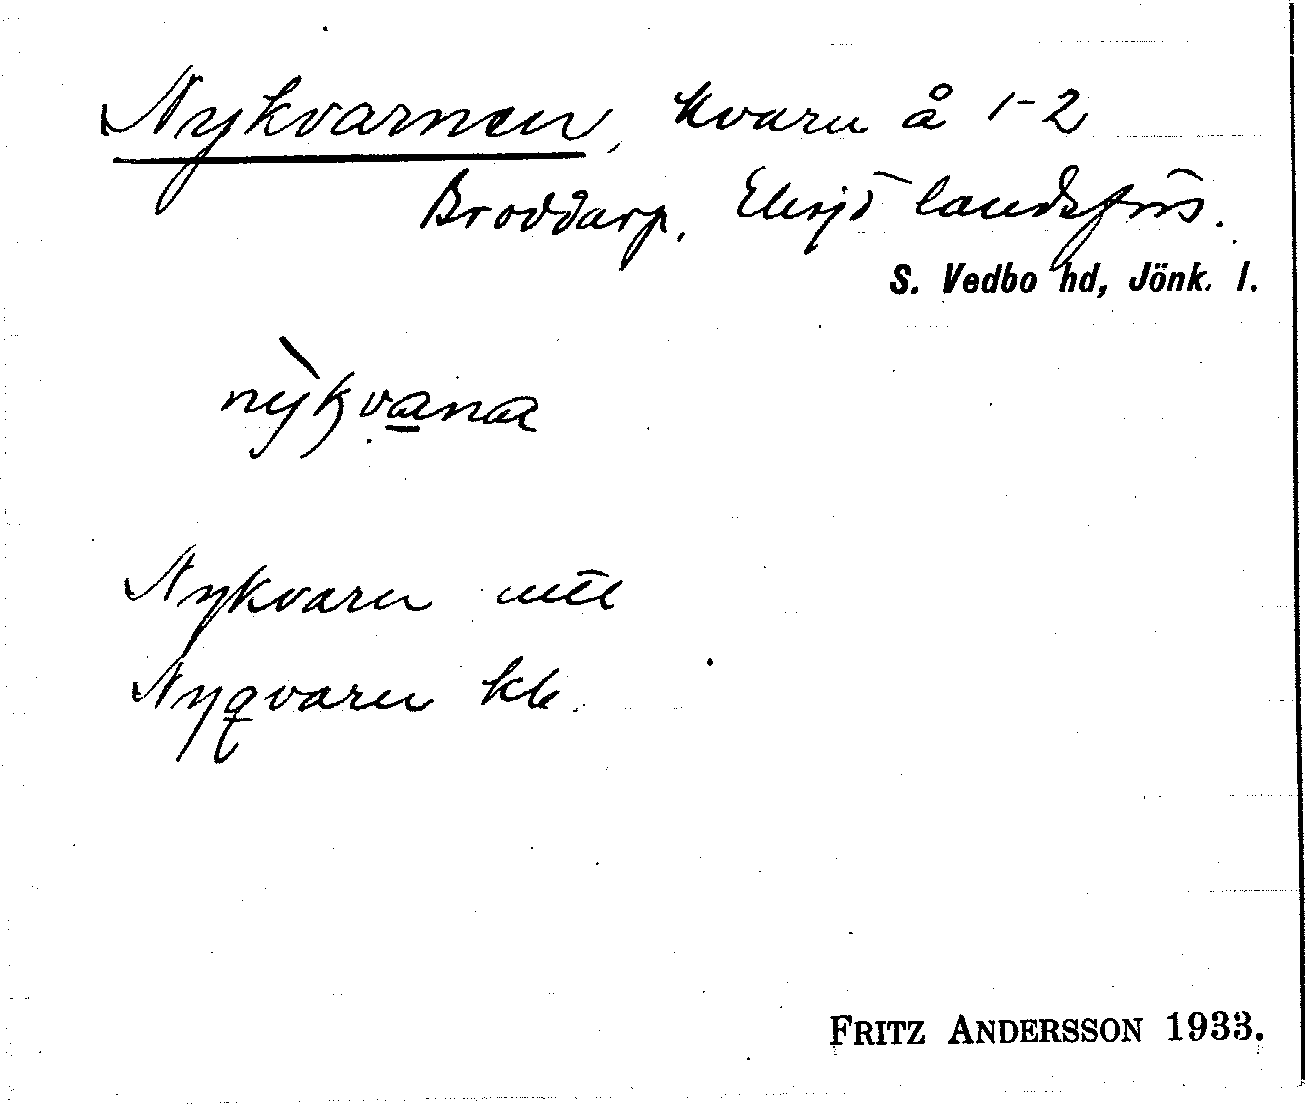 Nykvarnen, kvarn å 1-2
Broddarp, Eksjö landsförs.
S. Vedbo hd, Jönk. l.
nỳkvana
Nykvarn
Nyqvarn kb.
FRITZ ANDERSSON 1933.